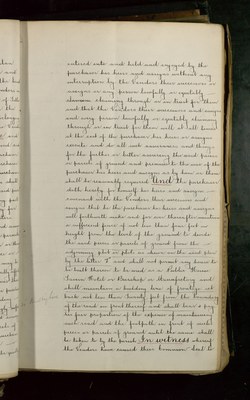 entered into and held and enjoyed by the
purchaser his heirs and assigns without any
interruption by the Vendors their successors or
assigns or any person lawfully or equitably
claiming through or in trust for them
and that the Vendors their successors and assigns
and every person lawfully or equitably claiming
through or in trust for them will at all times
at the cost of the purchaser his heirs or assigns
execute and do all such assurances and things
for the further or better assuring the said piece
or parcel of ground and premises to the use of the
purchaser his heirs and assigns as by him or them
shall be reasonably required And the purchaser
doth hereby for himself his heirs and assigns
covenant with the Vendors their successors and
assigns that he the purchaser his heirs and assigns
will forthwith make and for ever thereafter maintain
a sufficient fence of not less than four feet in
height from the level of the ground to divide
the said piece or parcel of ground from the
adjoining plot or plots as shown on the said plan
by the letter T and shall not permit any house to
be built thereon to be used as a Public House
Tavern Hotel or Beershop or Licensed House and
shall maintain a building line of frontage set
back not less than twenty feet from the boundary
of the road in front thereof and shall bear & pay
his fair proportion of the expense of maintaining
such road and the footpath in front of such
piece or parcel of ground until the same shall
be taken to by the parish In witness whereof
the Vendors have caused their Common Seal to